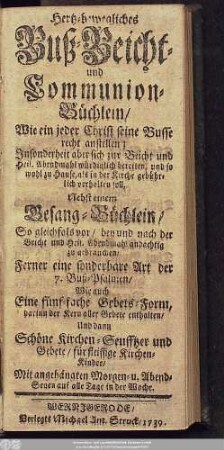 Hertz-bewegliches
Buß-Beicht-
und
Communion-
Büchlein/
Wie ein jeder Christ seine Busse
recht anstellen;
Insonderheit aber sich zur Beicht und
Heil. Abendmahl würdiglich bereiten, und so
wohl zu Hause, als in der Kirche gebühr-
lich verhalten soll,
Nebst einem
Gesang-Büchlein/
So gleichfals vor/ bey und nach der
Beicht und Heil. Abendmahl andächtig
zu gebrauchen;
Ferner eine sonderbare Art der
7. Buß-Psalmen/
Wie auch
Eine fünffache Gebets-Form,
darinn der Kern aller Gebete enthalten/
Und dann
Schöne Kirchen-Seufftzer und
Gebete/ für fleissige Kirchen-
Kinder/
Mit angehängten Morgen- u. Abend-
Segen auf alle Tage in der Woche.
WERNIGERODE/
Verlegts Michael Ant. Struck/ 1739.